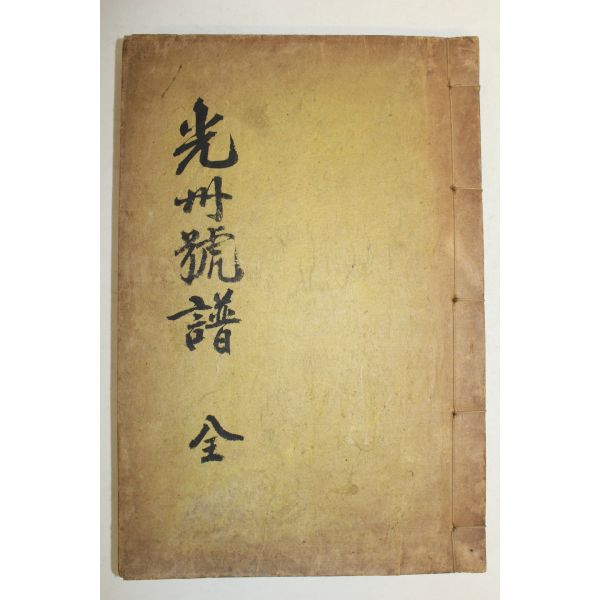 光州號譜 全